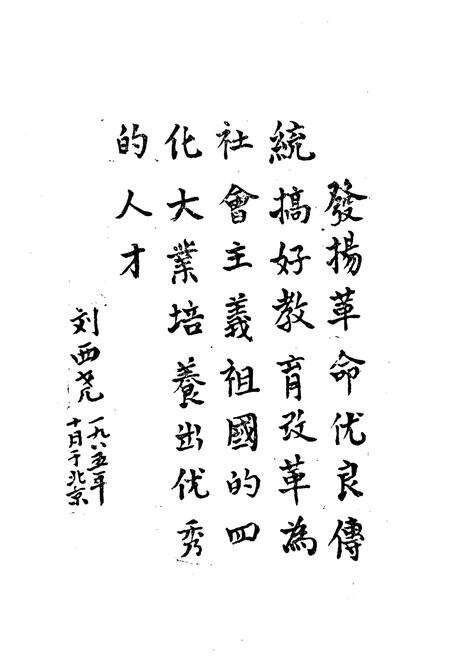 發揚革命优良傳
統搞好教育改革為
社會主義祖國的四
化大業培養出优秀
的人才
刘西尧
一九八五年
十月于北京